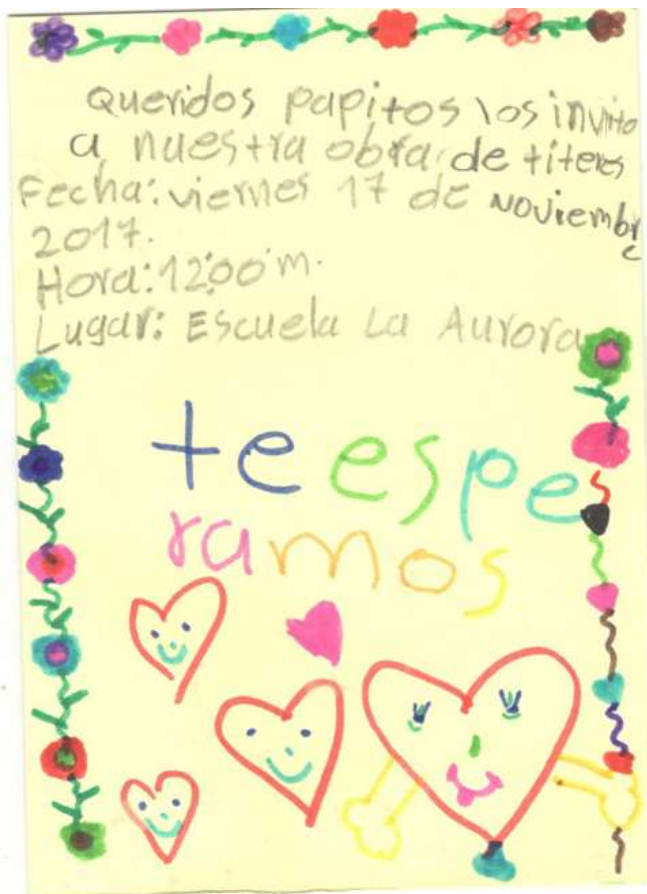 Queridos papitos los invito
a nuestra obra de titeres
Fecha: viernes 17 de Noviembre
2017.
Hora: 12:00 m.
Lugar: Escuela La Aurora
te espe
ramos